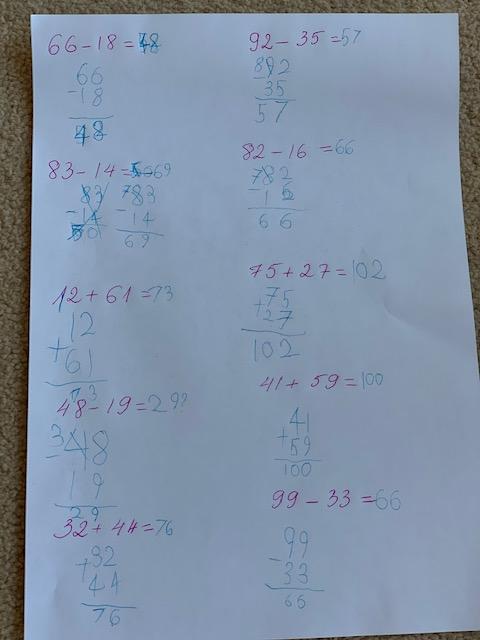 66-18=48
66
-18
48
83-14=69
83
-14
783
-14
69
12+61=73
12
+61
73
48-19=29?
348
-19
29
32+44=76
+32
44
76
92-35=57
892
-35
57
82-16=66
782
-16
66
75+27=102
+75
27
102
41+59=100
41
+59
100
99-33=66
99
-33
66